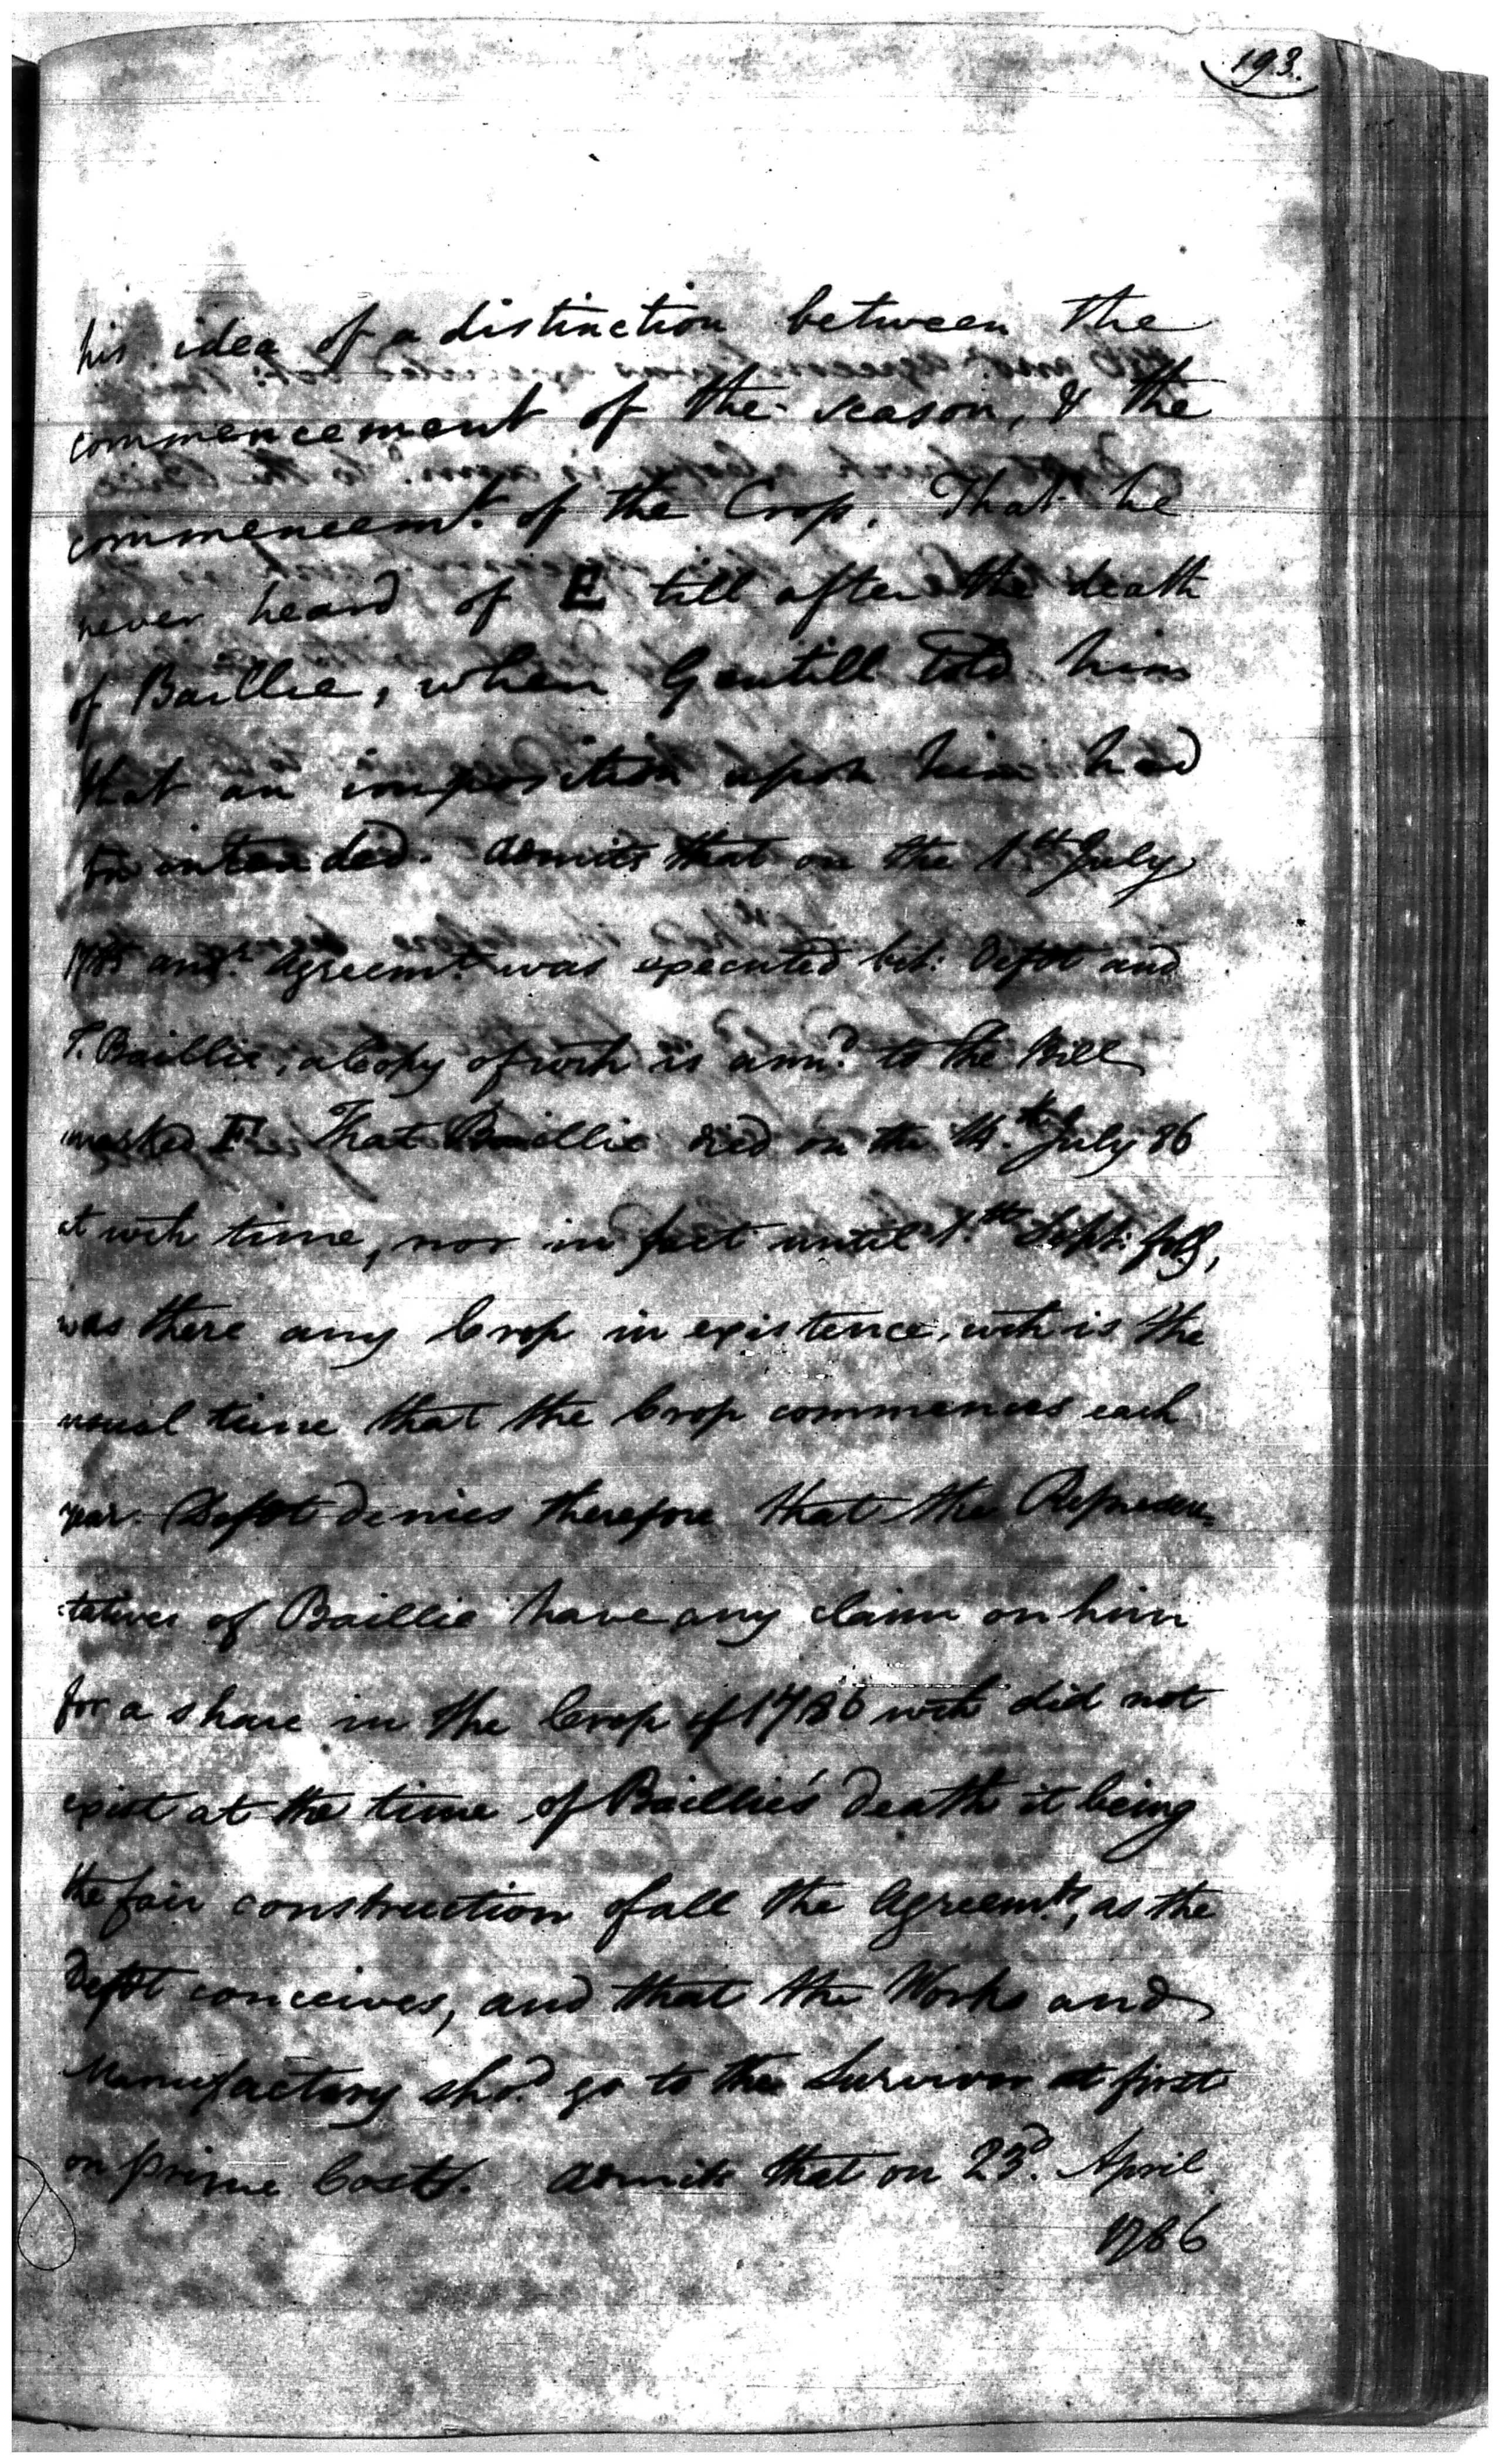 193.
his idea of a distinction between the
commencement of the season, & the
commencemt. of the Crop. That he
never heard of E till after the death
of Baillie, when Gentill told him
that an imposition upon him had
intended. Admits that on the 1st July
1785 anor. Agreemt. was executed bet: Deft and
T. Baillie, a Copy of wch is annd. to the Bill
marked F. That Baillie died on the July 86
at wch time, nor in fact until 1st Sept: folg,
was there any Crop in existence, wch is the
usual time that the Crop commences each
year. Deft denies therefore that the Represen=
=tatives of Baillie have any claim on him
for a share in the Crop of 1786 wch did not
exist at the time of Baillie's death it being
the fair construction of all the Agreemts, as the
Deft conceives, and that the Works and
Manufactory shod. go to the Survivor at first
or prime Costs. Admits that on 23d. April
1786